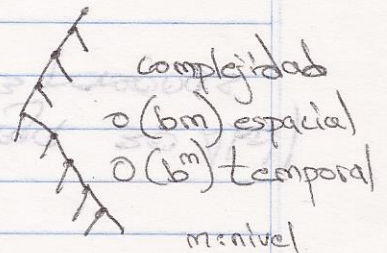 complejidad
O(bm) espacial
O(b^m) temporal
m=nivel